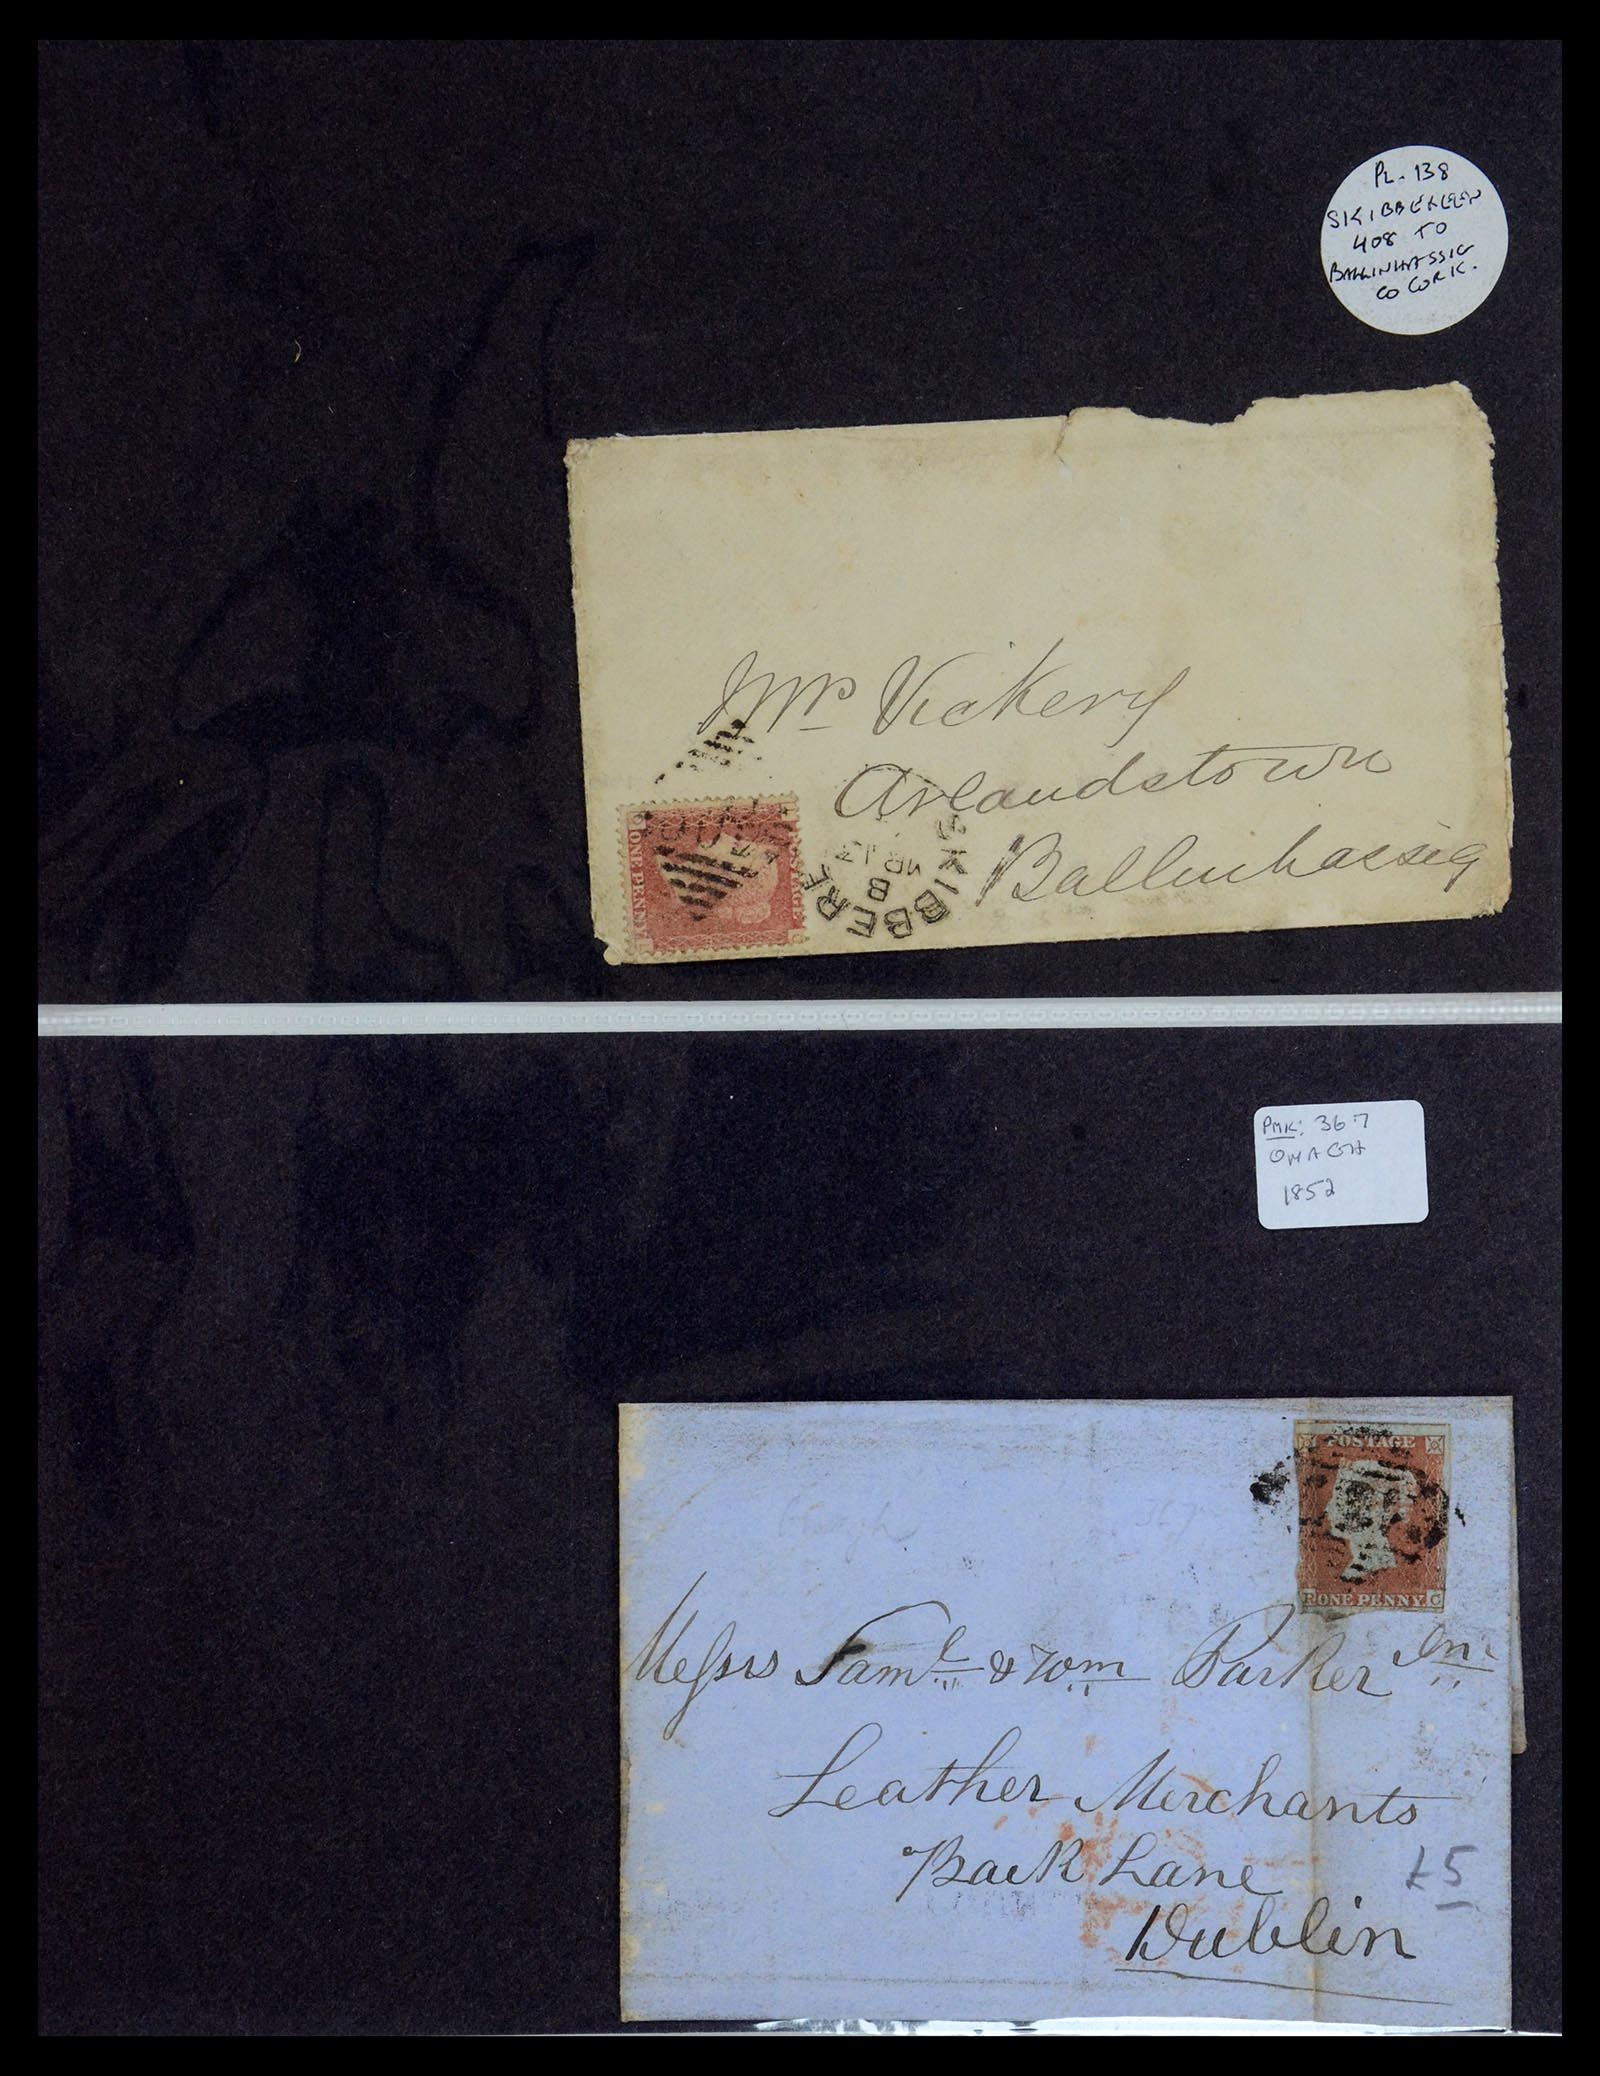 PL. 138
SKIBBEREEN
408 TO
BALLINHASSIG
CO CORK.
Mrs Vickery
Arlandstown
Ballinhassig
POSTAGE
ONE PENNY
SKIBBERE
B
MR 17
PMK: 367
OMAGH
1852
POSTAGE
F ONE PENNY. C
Omagh 367
Messrs Saml & Wm Parker
Leather Merchants
Back Lane
£5
Dublin